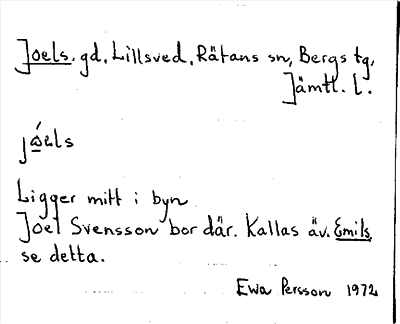 Joels. gd, Lillsved, Rätans sn, Bergs tg,
Jämtl. l.
Ligger mitt i byn
Joel Svensson bor där. Kallas äv. Emils,
se detta.
Ewa Persson 1972